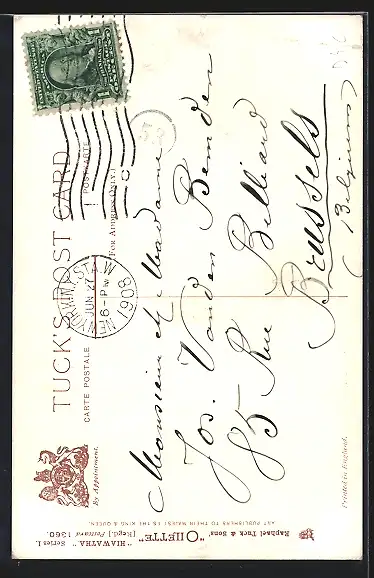 TUCK'S POST CARD
CARTE POSTALE
POSTKARTE
(FOR ADDRESS ONLY.)
By Appointment.
NEW YORK, N.Y. STA. W
JUN 27
6-PM
1908
53
Monsieur et Madame
Jos. Vanden Bemden
85 Rue Belliard
Brussels
(Belgium)
Printed in England.
Raphael Tuck & Sons' "OILETTE"
[Regd.] Postcard 1360.
"HIAWATHA" Series I.
ART PUBLISHERS TO THEIR MAJESTIES THE KING & QUEEN.